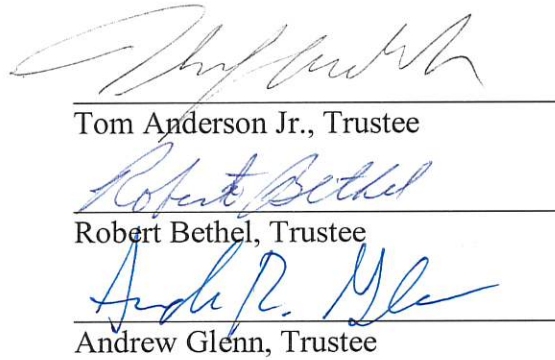 Tom Anderson Jr., Trustee
Robert Bethel
Robert Bethel, Trustee
Andrew Glenn, Trustee